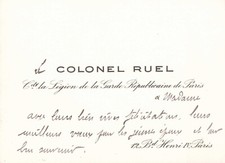 Le COLONEL RUEL
Cdt la Légion de la Garde Républicaine de Paris
à Madame
avec leurs bien vives félicitations, leurs
meilleurs vœux pour les jeunes époux et leur
bon souvenir.
12 Bd Henri IV Paris